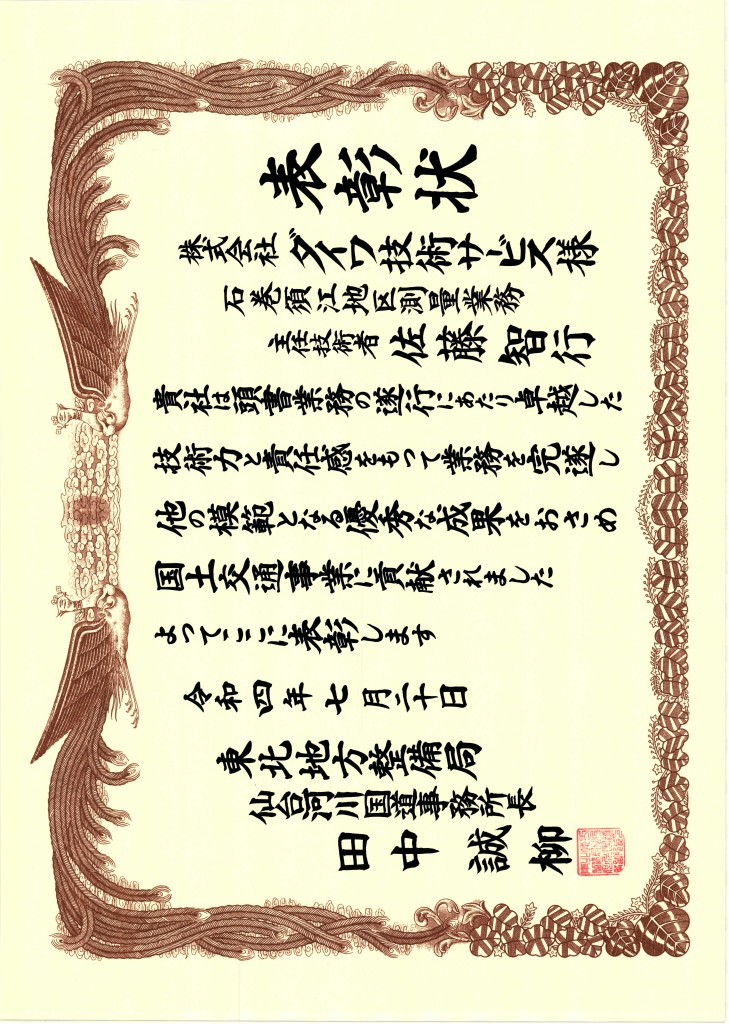 表彰状
株式会社 ダイワ技術サービス様
石巻須江地区測量業務
主任技術者 佐藤 智行
貴社は頭書業務の遂行にあたり卓越した
技術力と責任感をもって業務を完遂し
他の模範となる優秀な成果をおさめ
国土交通事業に貢献されました
よってここに表彰します
令和四年七月二十日
東北地方整備局
仙台河川国道事務所長
田中 誠柳